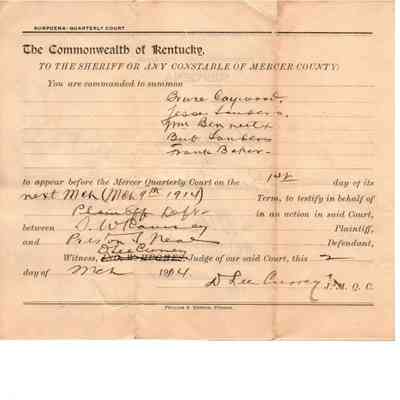 SUBPOENA-QUARTERLY COURT
The Commonwealth of Kentucky,
TO THE SHERIFF OR ANY CONSTABLE OF MERCER COUNTY:
You are commanded to summon
Bruce Caywood.
Jesse Sanders.
Jim Bennett
Bub Sanders
Frank Baker.
to appear before the Mercer Quarterly Court on the 1st day of its
next Mch (Mch 9th 1914) Term, to testify in behalf of
Plaintiff in an action in said Court,
between J. W. Plaintiff,
and Neal Defendant,
Witness, D Lee Judge of our said Court, this 2
day of Mch 1904.
D Lee J. M. Q. C.